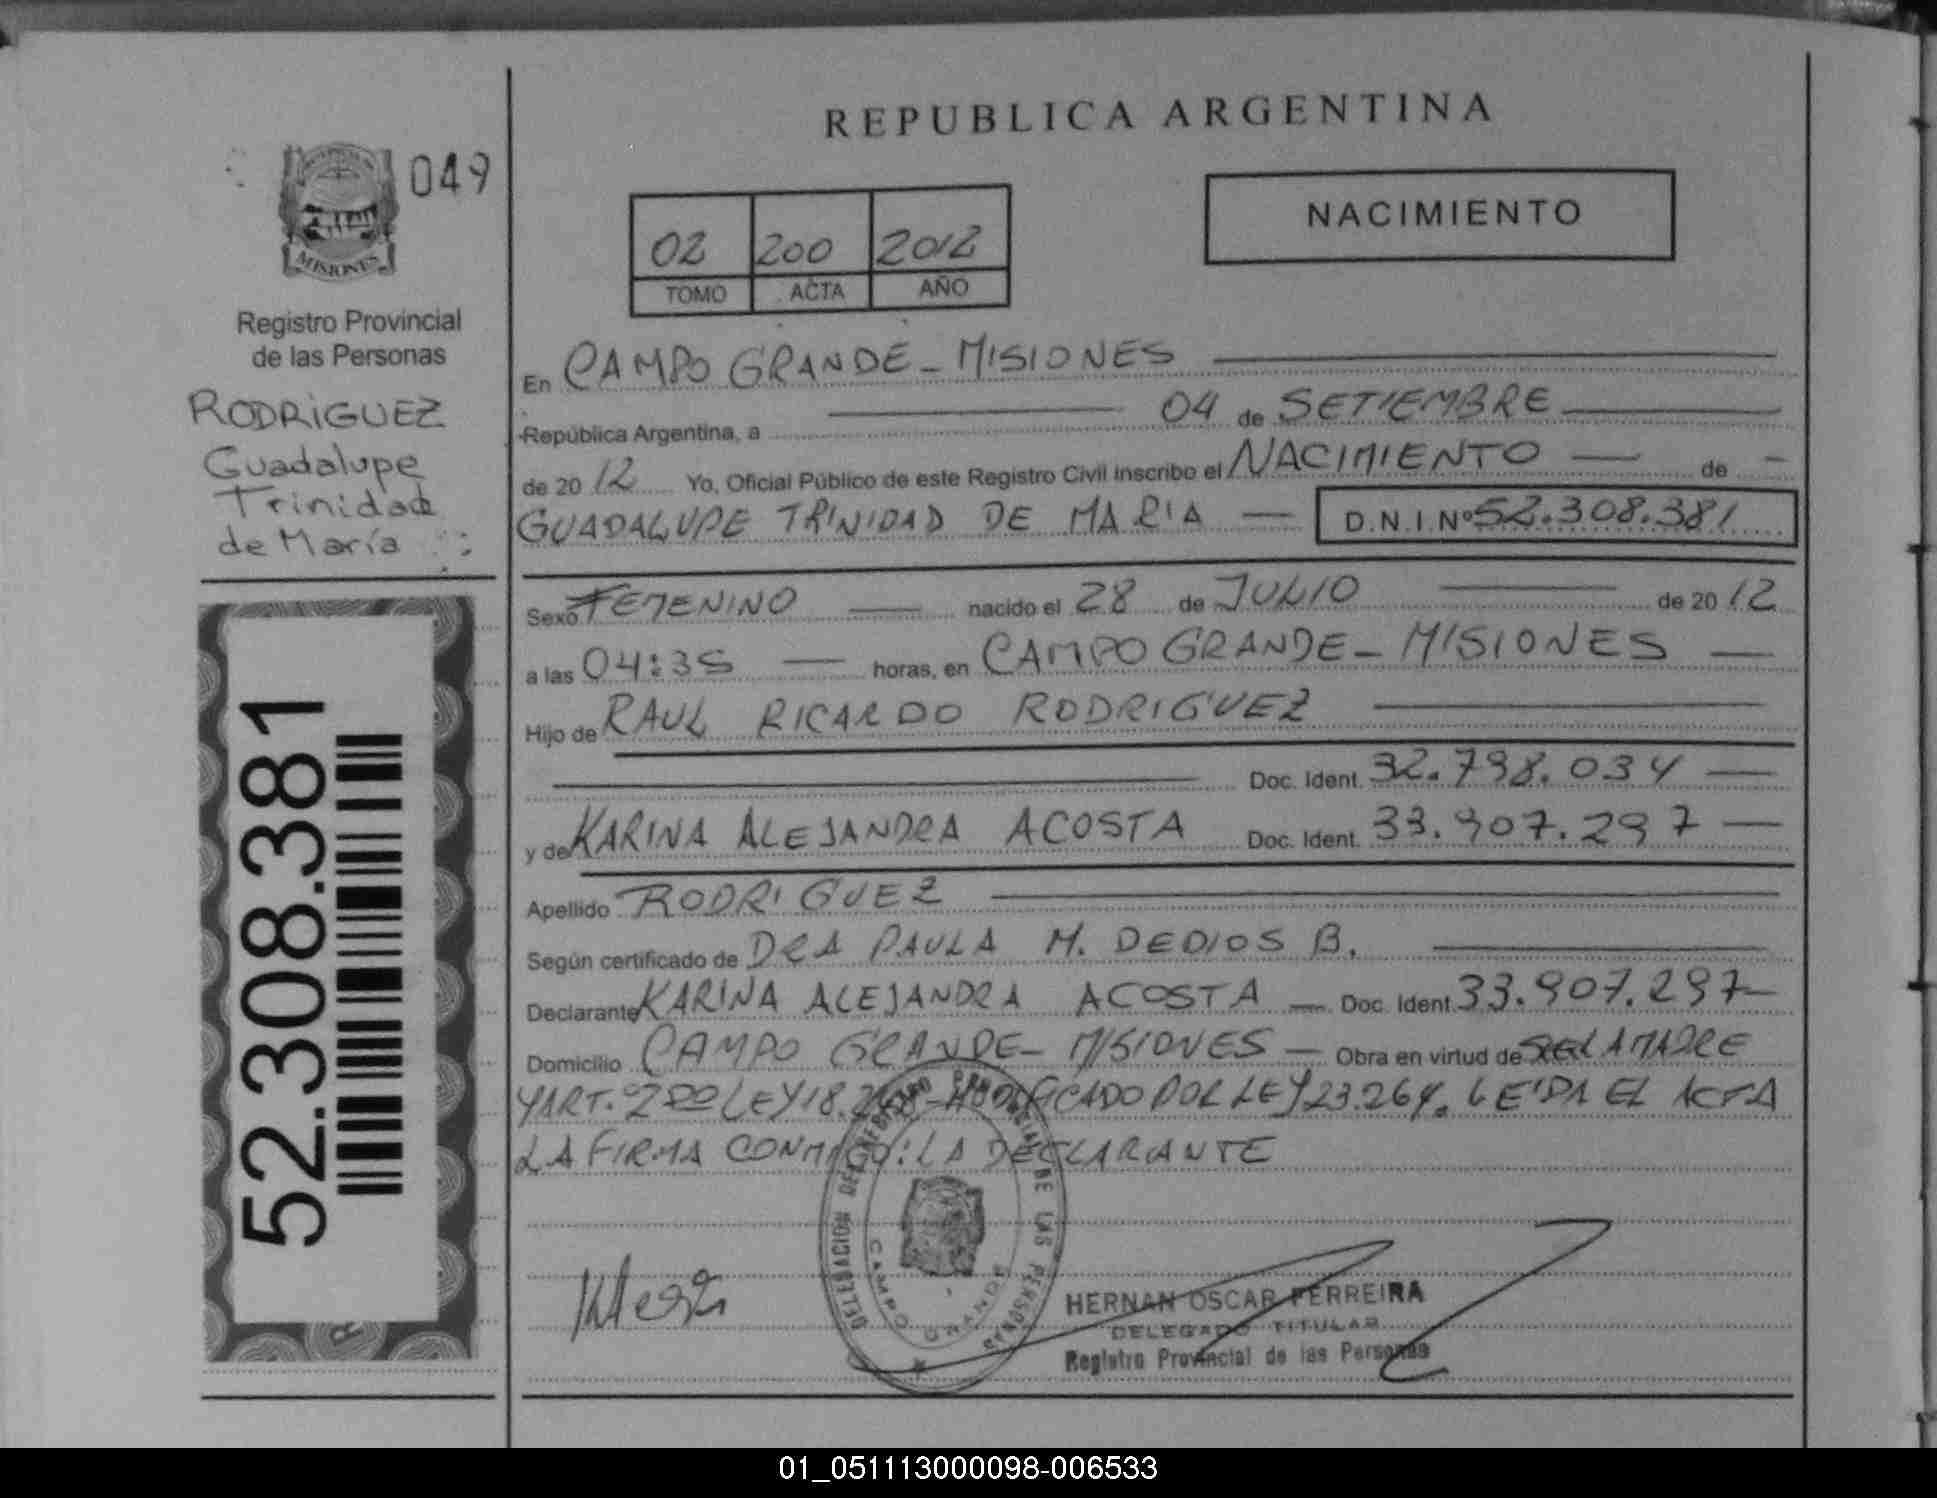 REPUBLICA ARGENTINA
049
MISIONES
Registro Provincial
de las Personas
RODRIGUEZ
Guadalupe
Trinidad
de María
52.308.381
02 200 2012
TOMO ACTA AÑO
NACIMIENTO
En CAMPO GRANDE - MISIONES
República Argentina, a 04 de SETIEMBRE
de 2012 Yo, Oficial Público de este Registro Civil inscribo el NACIMIENTO de
GUADALUPE TRINIDAD DE MARIA D.N.I.Nº 52.308.381
Sexo FEMENINO nacido el 28 de JULIO de 2012
a las 04:35 horas, en CAMPO GRANDE - MISIONES
Hijo de RAUL RICARDO RODRIGUEZ
Doc. Ident. 32.798.034
y de KARINA ALEJANDRA ACOSTA Doc. Ident. 33.907.297
Apellido RODRIGUEZ
Según certificado de DRA PAULA M. DEDIOS B.
Declarante KARINA ALEJANDRA ACOSTA Doc. Ident. 33.907.297
Domicilio CAMPO GRANDE - MISIONES Obra en virtud de SER LA MADRE
Y ART. 2DO LEY 18.248 - MODIFICADO POR LEY 23.264. LEIDA EL ACTA
LA FIRMA CONMIGO: LA DECLARANTE
DELEGACION DEL REGISTRO PROVINCIAL DE LAS PERSONAS
CAMPO GRANDE
HERNAN OSCAR FERREIRA
DELEGADO TITULAR
Registro Provincial de las Personas
01_051113000098-006533